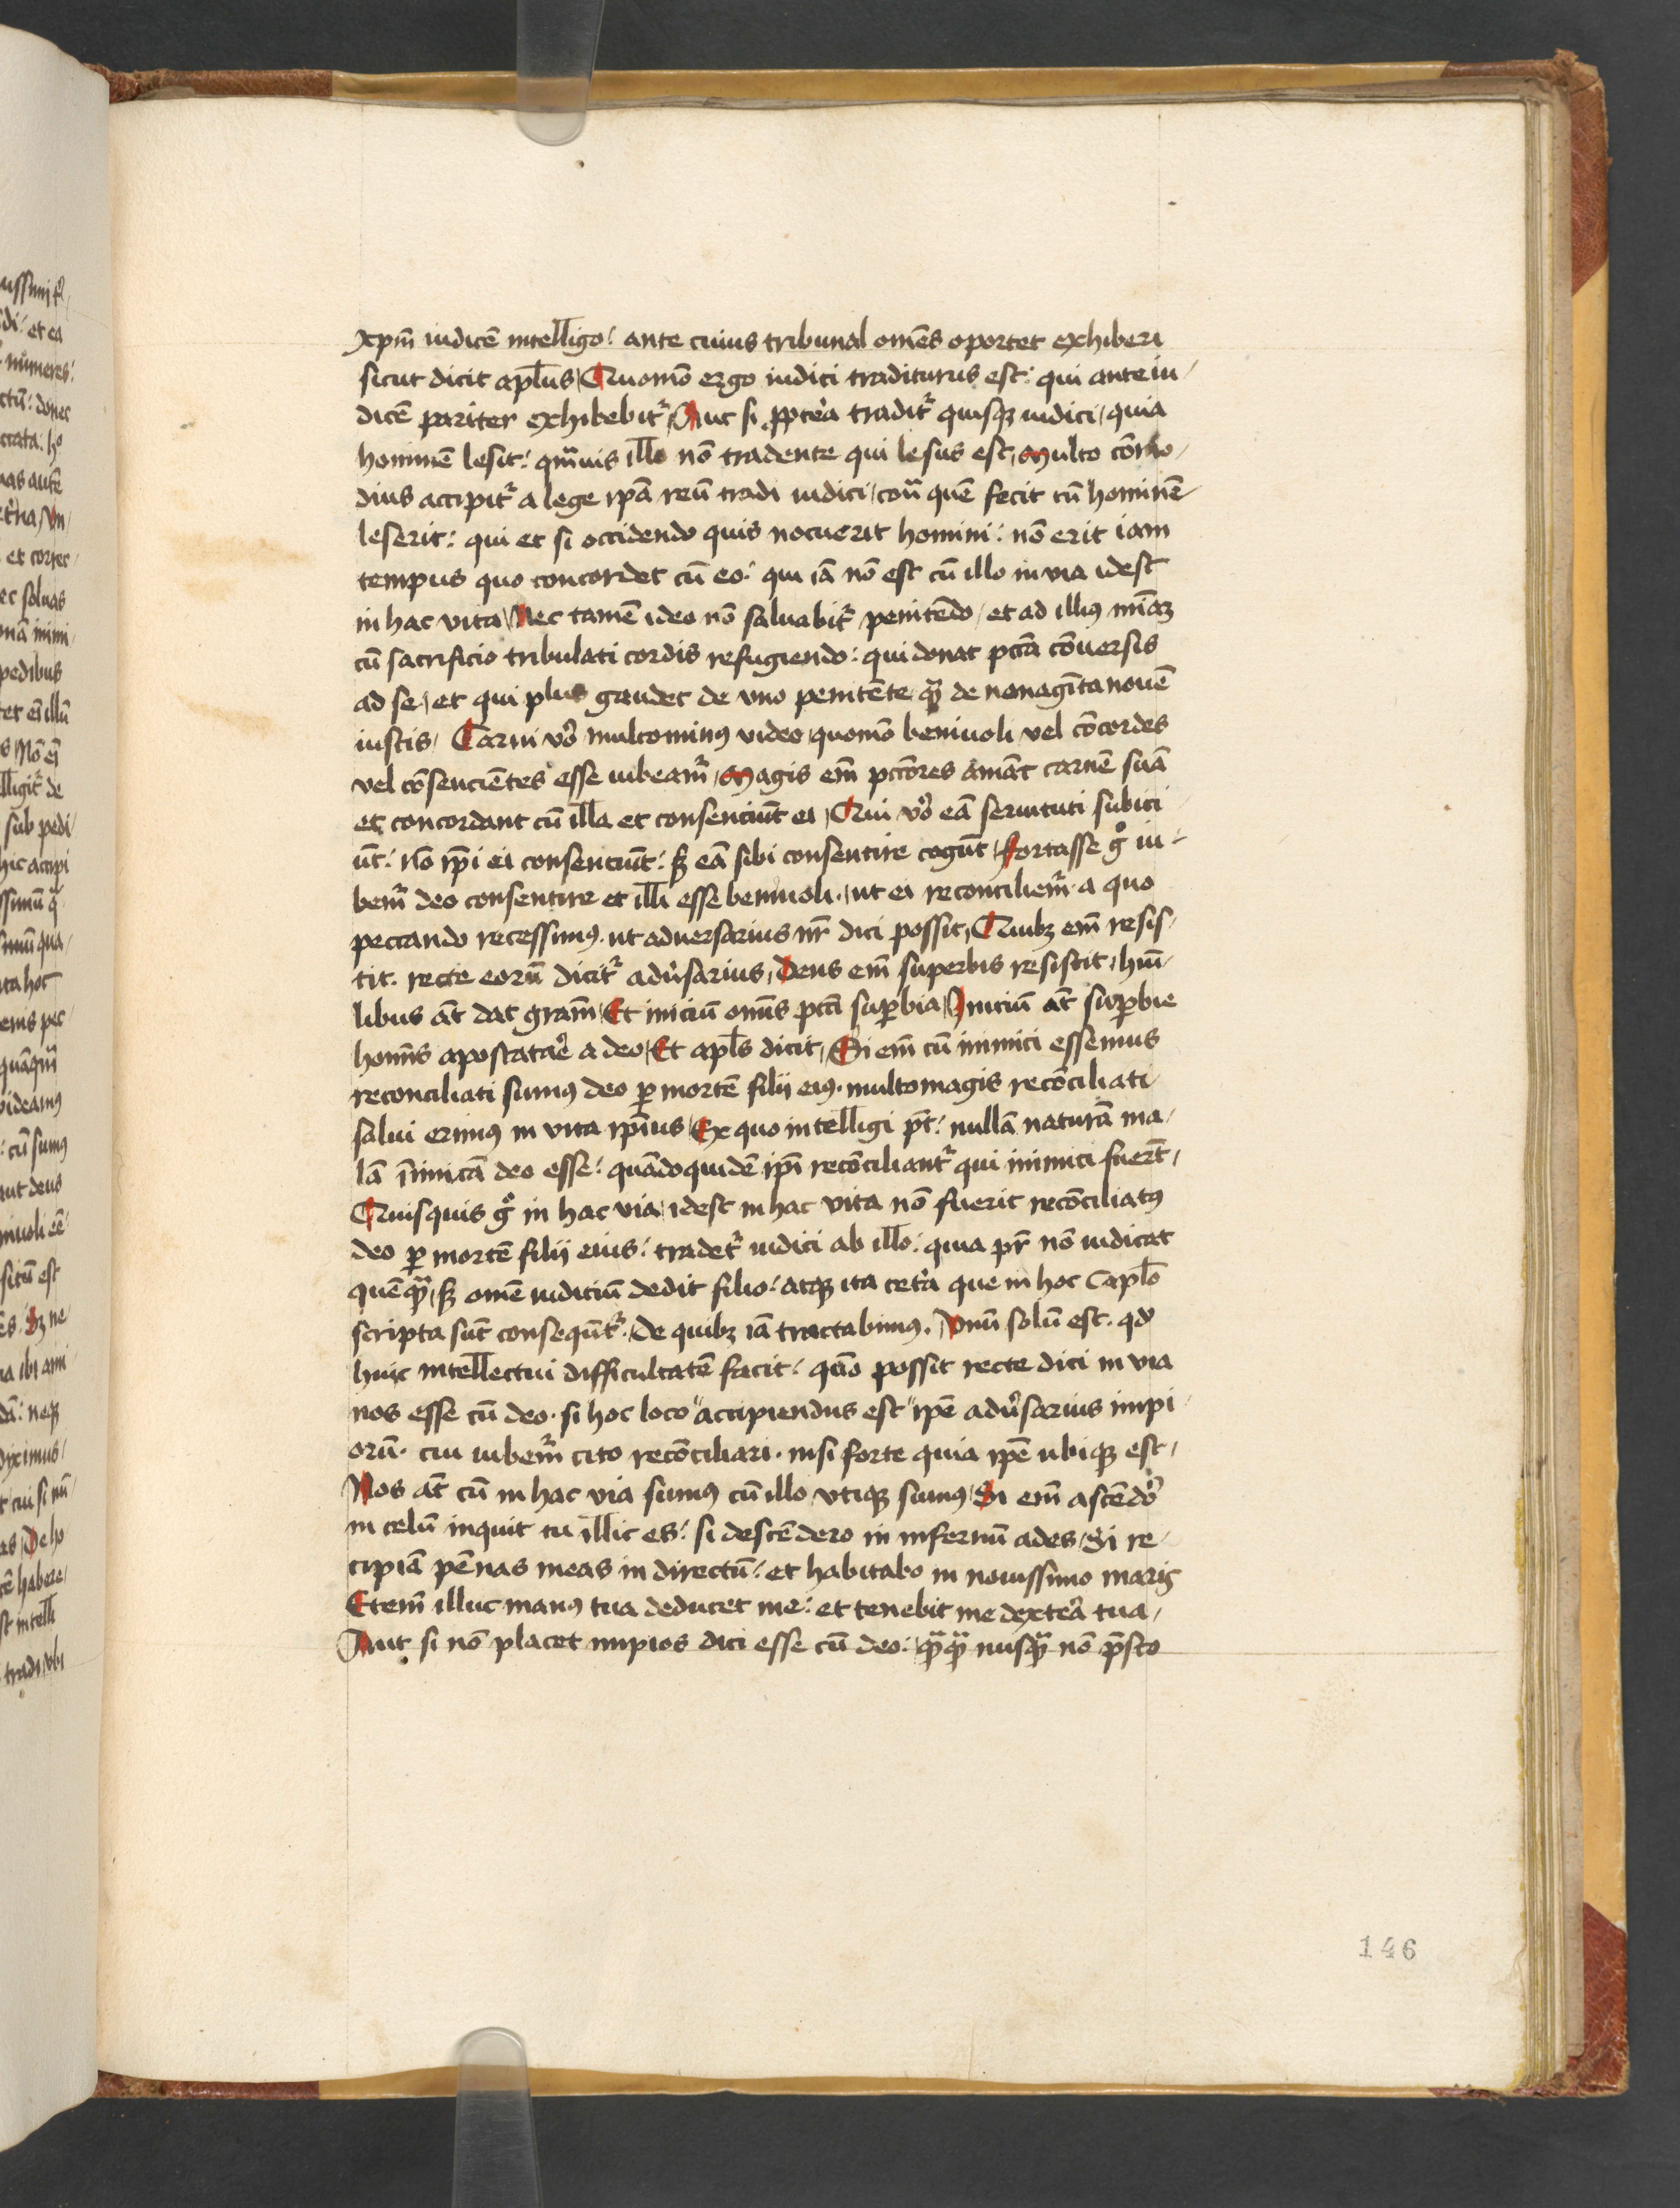 xp̄m iudicē intelligo: ante cuius tribunal om̄es oportet exhiberi
sicut dicit apl̄us, Quomō ergo iudici traditurus est: qui ante iu-
dicē pariter exhibebit᷑, Aut si ꝓpterͣ tradit᷑ quisqꝫ iudici, quia
hominē lesit: qm̄uis illo nō tradente qui lesus est, multo cōmo-
dius accipit᷑ a lege ip̄a reū tradi iudici, cont̄ quē fecit cū hominē
leserit: qui et si occidendo quis nocuerit homini: nō erit iam
tempus quo concordet cū eo: qui iā nō est cū illo in via idest
in hac vita, Nec tamē ideo nō saluabit᷑ penitēdo, et ad illiꝰ mīāꝫ
cū sacrificio tribulati cordis refugiendo: qui donat pctā cōuersis
ad se, et qui plus gaudet de vno penitēte qꝫ̄ de nonagīta nouē
iustis, Carni vo᷑ multominꝰ video, quomō beniuoli vel cōcordes
vel cōsencientes esse iubeam᷑, magis em̄ pctōres amāt carnē suā
et concordant cū illa et consenciūt ei, Qui vo᷑ eā seruituti subici
ūt: nō ip̄i ei consenciūt: sꝫ eā sibi consentire cogūt, fortasse gͦ iu-
bem᷑ deo consentire et illi esse beniuoli, ut ei reconciliem᷑ a quo
peccando recessimꝰ. ut aduersarius nr̄ dici possit, Quibꝫ em̄ resis-
tit. recte eorū dicit᷑ adūsarius, Deus em̄ superbis resistit, hūi-
libus āt dat gram̄, Et iniciū omīs pctī suꝑbia, Iniciū āt suꝑbie
homīs apostatare a deo, Et apl̄s dicit, Si em̄ cū inimici essemus
reconciliati sumꝰ deo ꝑ mortē filij eiꝰ. multomagis recōciliati
salui erimꝰ in vita ip̄ius, Ex quo intelligi pt̄: nullā naturā ma-
lā īnimicā deo esse: quādoquidē ip̄i recōciliant᷑ qui inimici fuerūt,
Quisquis gͦ in hac via, idest in hac vita nō fuerit recōciliatꝰ
deo ꝑ mortē filij eius: tradet᷑ iudici ab illo: quia pr̄ nō iudicat
quēqꝫ̄, sꝫ omē iudiciū dedit filio: atqꝫ ita ceterͣ que in hoc Capl̄o
scripta sūt consequūt᷑. De quibꝫ iā tractabimꝰ. Vnū solū est. qd̄
huic intellectui difficultatē facit: quō possit recte dici in via
nos esse cū deo. si hoc loco "accipiendus est" ip̄e adūsarius impi-
orū. cui iubem᷑ cito recōciliari. nisi forte quia ip̄e ubiqꝫ est,
Nos āt cū in hac via sumꝰ cū illo vtiqꝫ sumꝰ, Si em̄ ascēdo᷑
in celū inquit tu illic es: si descēdero in infernū ades, Si re-
cipiā pēnas meas in directū: et habitabo in nouissimo maris
Etem̄ illuc manꝰ tua deducet me: et tenebit me dexterͣ tua,
Aut si nō placet impios dici esse cū deo: qꝫ̄qꝫ̄ nusqꝫ̄ nō p̄sto
146